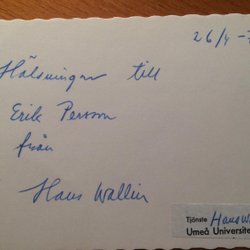 26/4 -7
Hälsningar till
Erik Persson
från
Hans Wallin
Tjänste Hans W
Umeå Universite